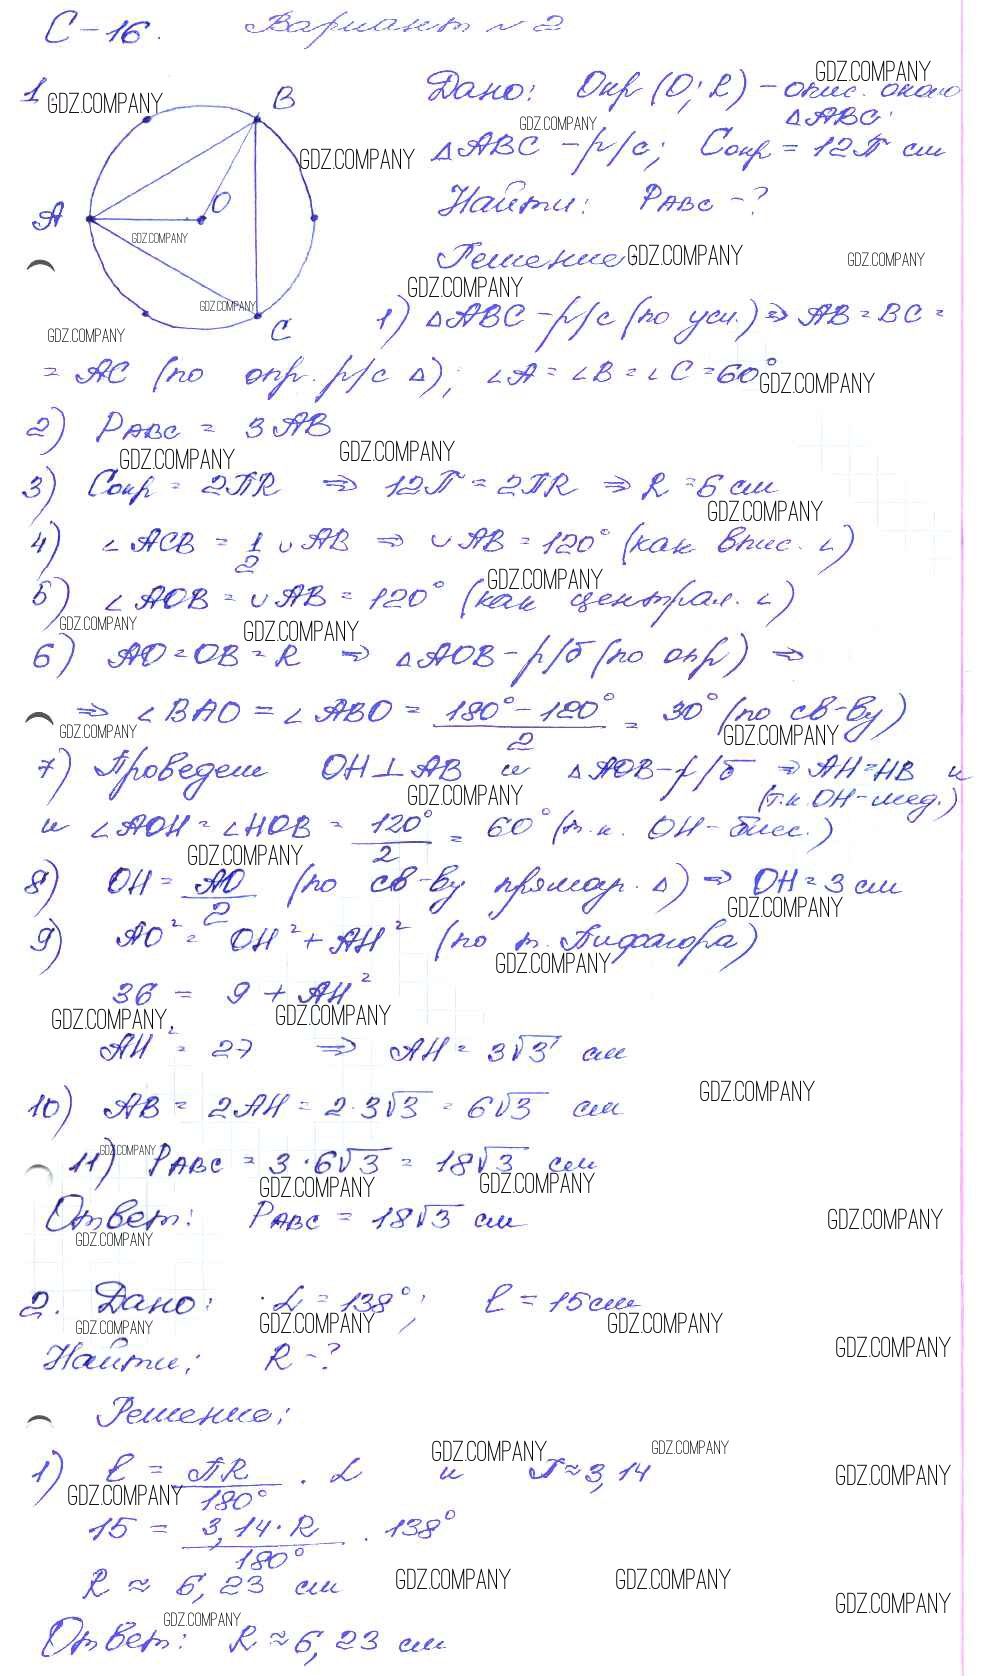 С-16. Вариант №2
1 GDZ.COMPANY
B
A
O
C
Дано: Окр(O; R) – опис. около GDZ.COMPANY
ΔABC;
GDZ.COMPANY
GDZ.COMPANY
ΔABC – р/с; Cокр = 12π см
Найти: PABC – ?
GDZ.COMPANY
Решение GDZ.COMPANY GDZ.COMPANY
GDZ.COMPANY
GDZ.COMPANY
GDZ.COMPANY
1) ΔABC – р/с (по усл.) ⇒ AB = BC =
= AC (по опр. р/с Δ); ∠A = ∠B = ∠C = 60° GDZ.COMPANY
2) PABC = 3AB
GDZ.COMPANY GDZ.COMPANY
3) Cокр = 2πR ⇒ 12π = 2πR ⇒ R = 6 см
GDZ.COMPANY
4) ∠ACB = 1/2 ∪AB ⇒ ∪AB = 120° (как впис. ∠)
GDZ.COMPANY
5) ∠AOB = ∪AB = 120° (как централ. ∠)
GDZ.COMPANY GDZ.COMPANY
6) AO = OB = R ⇒ ΔAOB – р/б (по опр) ⇒
⇒ ∠BAO = ∠ABO = (180° – 120°)/2 = 30° (по св-ву)
GDZ.COMPANY GDZ.COMPANY
7) Проведем OH ⊥ AB и ΔAOB – р/б ⇒ AH = HB и
GDZ.COMPANY (т.к. OH – мед.)
и ∠AOH = ∠HOB = 120°/2 = 60° (т.к. OH – бисс.)
GDZ.COMPANY
8) OH = AO/2 (по св-ву прямоуг. Δ) ⇒ OH = 3 см
GDZ.COMPANY
9) AO² = OH² + AH² (по т. Пифагора)
GDZ.COMPANY
36 = 9 + AH²
GDZ.COMPANY GDZ.COMPANY
AH² = 27 ⇒ AH = 3√3 см
GDZ.COMPANY
10) AB = 2AH = 2·3√3 = 6√3 см
GDZ.COMPANY
11) PABC = 3·6√3 = 18√3 см
GDZ.COMPANY GDZ.COMPANY
Ответ: PABC = 18√3 см GDZ.COMPANY
GDZ.COMPANY
2. Дано: α = 138°; ℓ = 15 см
GDZ.COMPANY GDZ.COMPANY GDZ.COMPANY
Найти: R – ? GDZ.COMPANY
Решение:
GDZ.COMPANY GDZ.COMPANY
1) ℓ = πR/180° · α и π ≈ 3,14 GDZ.COMPANY
GDZ.COMPANY
15 = 3,14·R/180° · 138°
R ≈ 6,23 см GDZ.COMPANY GDZ.COMPANY
GDZ.COMPANY GDZ.COMPANY
Ответ: R ≈ 6,23 см